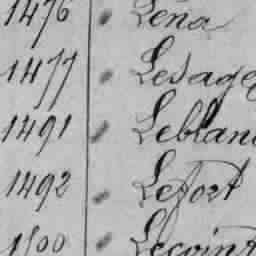 1476 " Lena
1477 " Lesage
1491 " Leblanc
1492 " Lefort
1500 " Lecoint